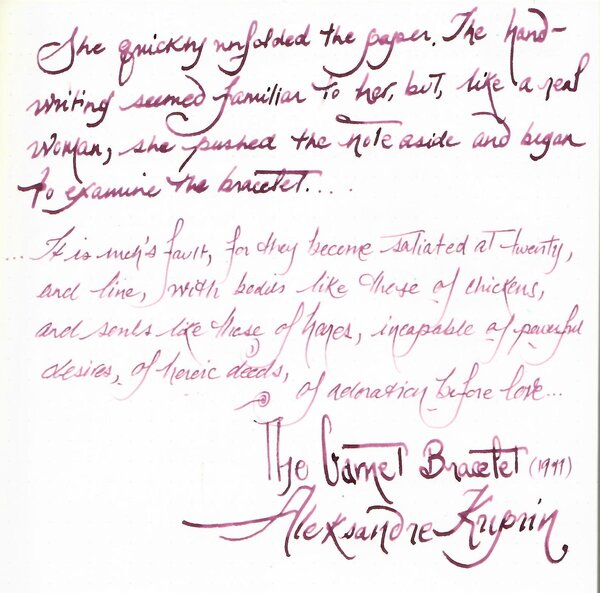 She quickly unfolded the paper. The hand-
writing seemed familiar to her, but, like a real
woman, she pushed the note aside and began
to examine the bracelet....
... It is men's fault, for they become satiated at twenty,
and line, with bodies like those of chickens,
and souls like those of hares, incapable of powerful
desires, of heroic deeds,
of adoration before love...
The Garnet Bracelet (1911)
Aleksandre Kuprin